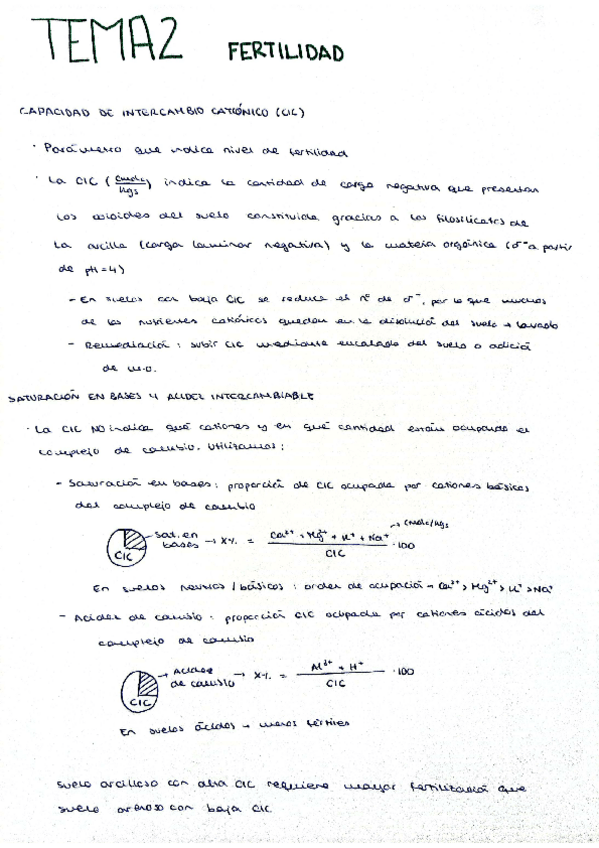 TEMA2 FERTILIDAD
CAPACIDAD DE INTERCAMBIO CATIÓNICO (CIC)
· Parámetro que indica nivel de fertilidad
· La CIC (cmolc/kgs) indica la cantidad de carga negativa que presentan
los coloides del suelo constituida gracias a los filosilicatos de
la arcilla (carga laminar negativa) y la materia orgánica (σ⁻ a partir
de pH=4)
- En suelos con baja CIC se reduce el nº de σ⁻, por lo que muchos
de los nutrientes catiónicos quedan en la disolución del suelo → lavado
- Remediación: subir CIC mediante encalado del suelo o adición
de m.o.
SATURACIÓN EN BASES Y ACIDEZ INTERCAMBIABLE
· La CIC NO indica qué cationes y en qué cantidad están ocupando el
complejo de cambio. Utilizamos:
- Saturación en bases: proporción de CIC ocupada por cationes básicos
del complejo de cambio
CIC → sat. en bases → X% = (Ca²⁺ + Mg²⁺ + K⁺ + Na⁺ / CIC) · 100 → cmolc/kgs
En suelos neutros/básicos: orden de ocupación → Ca²⁺ > Mg²⁺ > K⁺ > Na⁺
- Acidez de cambio: proporción CIC ocupada por cationes ácidos del
complejo de cambio
CIC → Acidez de cambio → X% = (Al³⁺ + H⁺ / CIC) · 100
En suelos ácidos → menos fértiles
Suelo arcilloso con alta CIC requiere mayor fertilización que
suelo arenoso con baja CIC